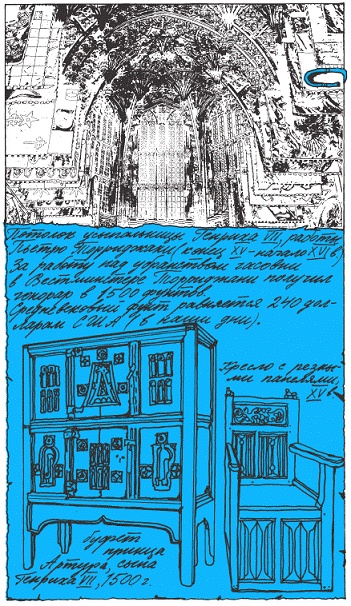 Потолок усыпальницы Генриха VII, работы
Пьетро Торриджани (конец XV - начало XVI в.)
За работу над убранством часовни
в Вестминстере Торриджани получил
гонорар в 1500 фунтов.
Средневековый фунт равняется 240 дол-
ларам США (в наши дни).
Кресло с резны-
ми панелями,
XV в.
буфет
принца
Артура, сына
Генриха VII, 1500 г.